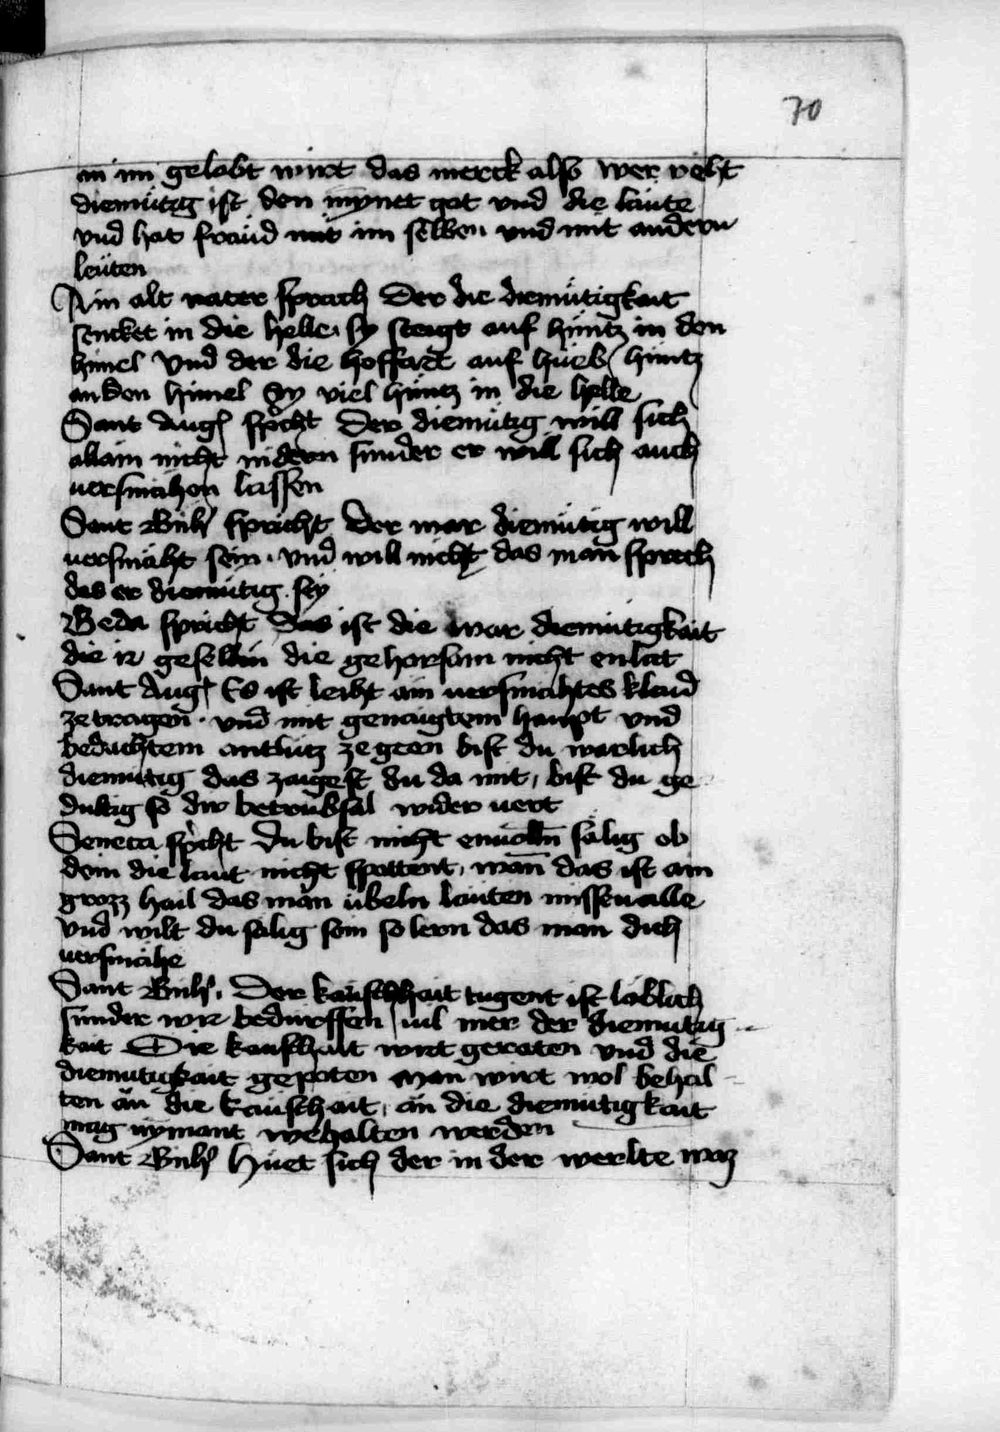 70
an im gelobt wirt das merck also wer recht
diemütig ist den mynet got vnd die läute
vnd hat fräud mit im selben vnd mit andern
leüten
Ain alt vater sprach Der die diemütigkait
sencket in die helle. sy steigt auf hüntz in den
himel Vnd der die hoffart auf hüeb hüntz
an den himel Sy viel hüntz in die helle
Sant Aug spͥcht Der diemütig will sich
allain nicht nidern sunder er will sich auch
versmähen lassen
Sant Bnh spricht Der war diemütig will
versmächt sein. vnd will nicht das man sprech
das er diemütig sey
Beda spricht Das ist die war diemütigkait
die ir gesellin die gehorsam nicht enlat
Sant Aug Es ist leiht ain versmähtes klaid
ze tragen. vnd mit genaigtem haupt vnd
bedachtem antlütz ze geen bist du warlich
diemütig das zaigest du da mit, bist du ge
dultig so dir betrübsal wider vert
Seneca spͥcht Du bist nicht sälig ob
dein die läut nicht spottent, wan̄ das ist ain
grozz hail das man übeln läuten missevalle
Vnd wilt du sälig sein so lern das man dich
versmähe
Sant Bnh. Der käuschhait tugent ist löblich
sunder wir bedürffen vil mer der diemütig
kait Die keuschait wirt geraten vnd die
diemütigkait gepoten Man wirt wol behal
ten än die käuschait, än die diemütigkait
mag nymant wehalten werden
Sant Bnh Hüet sich der in der werlte waz